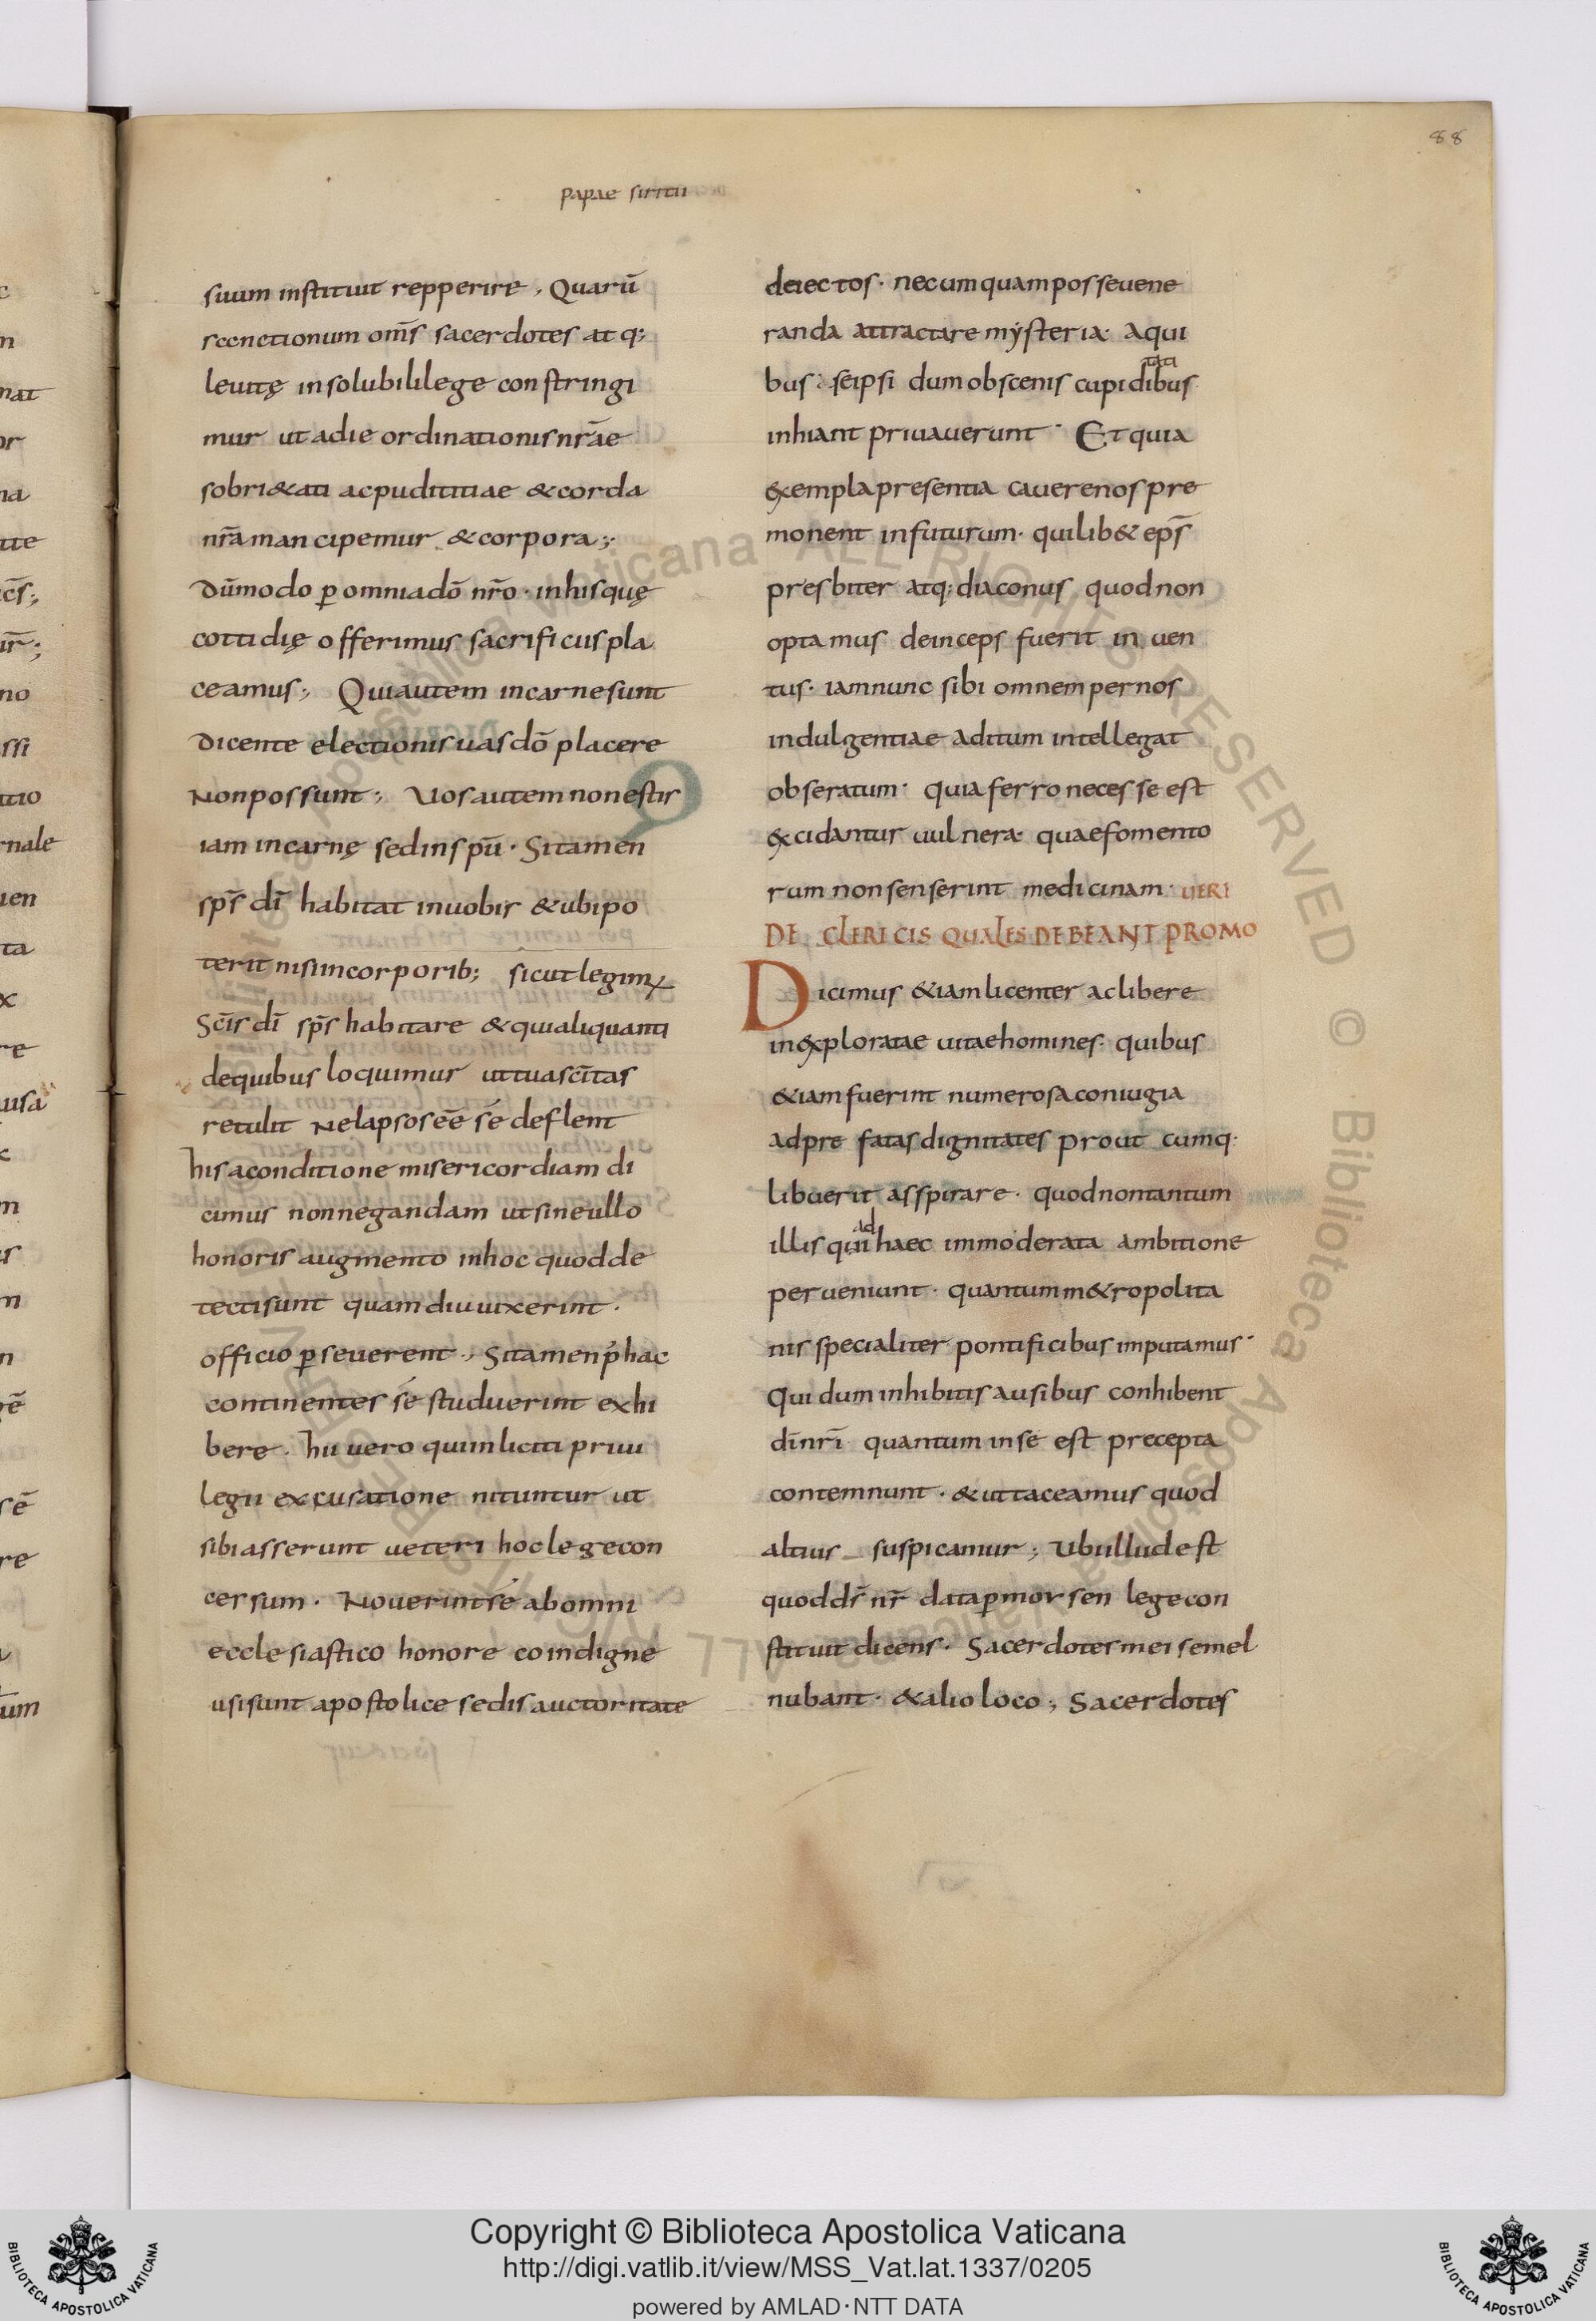 88
papae siricii
suum instituit repperire, Quarū
sccnctionum om̄s sacerdotes atq;
leuitę insolubili lege constringi
mur ut a die ordinationis nr̄ae
sobri&ati ac puditiae & corda
nr̄a mancipemur & corpora;
Dūmodo ꝑ omnia dō nr̄o · in his quę
cottidię offerimus sacrificiis pla
ceamus; Qui autem in carne sunt
Dicente electionis uas dō placere
Non possunt; Uos autem non estis
iam in carnę sed in spū · Si tamen
sps̄ dī habitat in uobis & ubi po
terit nisi in corporib; sicut legim
Sc̄is dī sps̄ habitare & quia aliquanti
de quibus loquimur ut tua sc̄itas
retulit Ne lapsos eē sé deflent
his a conditione misericordiam di
cimus non negandam ut sine ullo
honoris augmento in hoc quod de
tecti sunt quamdiu uixerint ·
officio ꝑseuerent ·, Si tamen p̓ hac
continentes sé studuerint exhi
bere · hii uero qui inliciti priui
legii excusatione nituntur ut
sibi asserunt ueteri hoc lege con
cersum · Nouerint sé ab omni
ecclesiastico honore co indigne
usi sunt apostolice sedis auctoritate
deiectos · nec umquam posse uene
randa attractare mẏsteria · a qui
bus · seipsi dum obscenis cupidi
tati
bus
inhiant priuauerunt · Et quia
exempla presentia cauere nos pre
monent in futurum · quilib& eps̄
presbiter atq; diaconus quod non
optamus deinceps fuerit inuen
tus · iam nunc sibi omnem per nos
indulgentiae aditum intellegat
obseratum · quia ferro necesse est
excidantur uulnera · quae fomento
rum non senserint medicinam · UERI
DE CLERICIS QUALES DEBEANT PROMO
Dicimus &iam licenter ac libere
inexploratae uitae homines · quibus
&iam fuerint numerosa coniugia
ad prefatas dignitates prout cumq·
libuerit asspirare · quod non tantum
ad
illis qui haec immoderata ambitione
perueniunt · quantum m&ropolita
nis specialiter pontificibus imputamus ·
Qui dum inhibitis ausibus conhibent
dī nr̄i quantum in se est precepta
contemnunt · & ut taceamus quod
altius suspicamur; Ubi illud est
quod dr̄ nr̄ data ꝑ morsen lege con
stituit dicens · Sacerdotes mei semel
nubant · & alio loco; Sacerdotes
Copyright © Biblioteca Apostolica Vaticana
http://digi.vatlib.it/view/MSS_Vat.lat.1337/0205
powered by AMLAD·NTT DATA
BIBLIOTECA APOSTOLICA VATICANA
BIBLIOTECA APOSTOLICA VATICANA